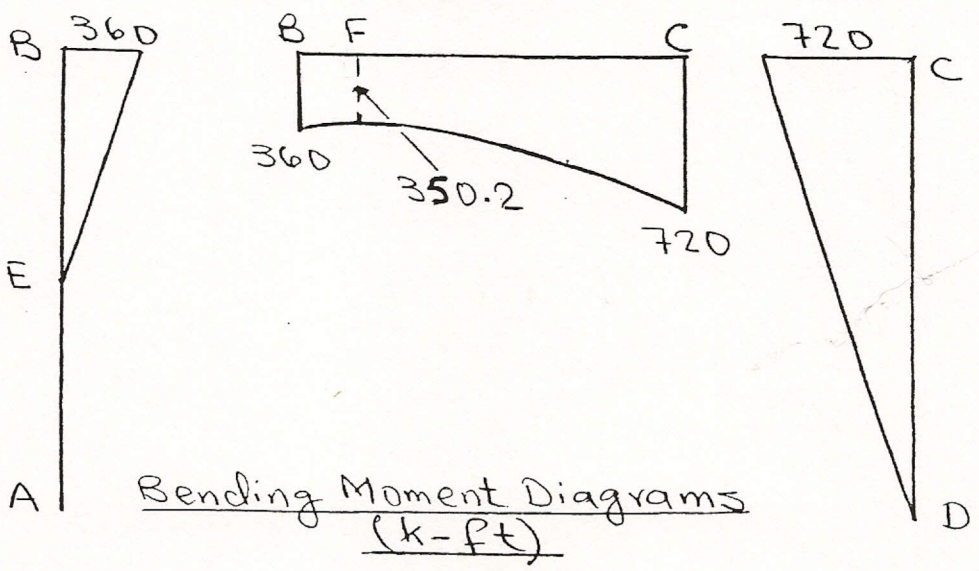 B 360
B F C
720 C
360
350.2
720
E
A
Bending Moment Diagrams
(k-ft)
D